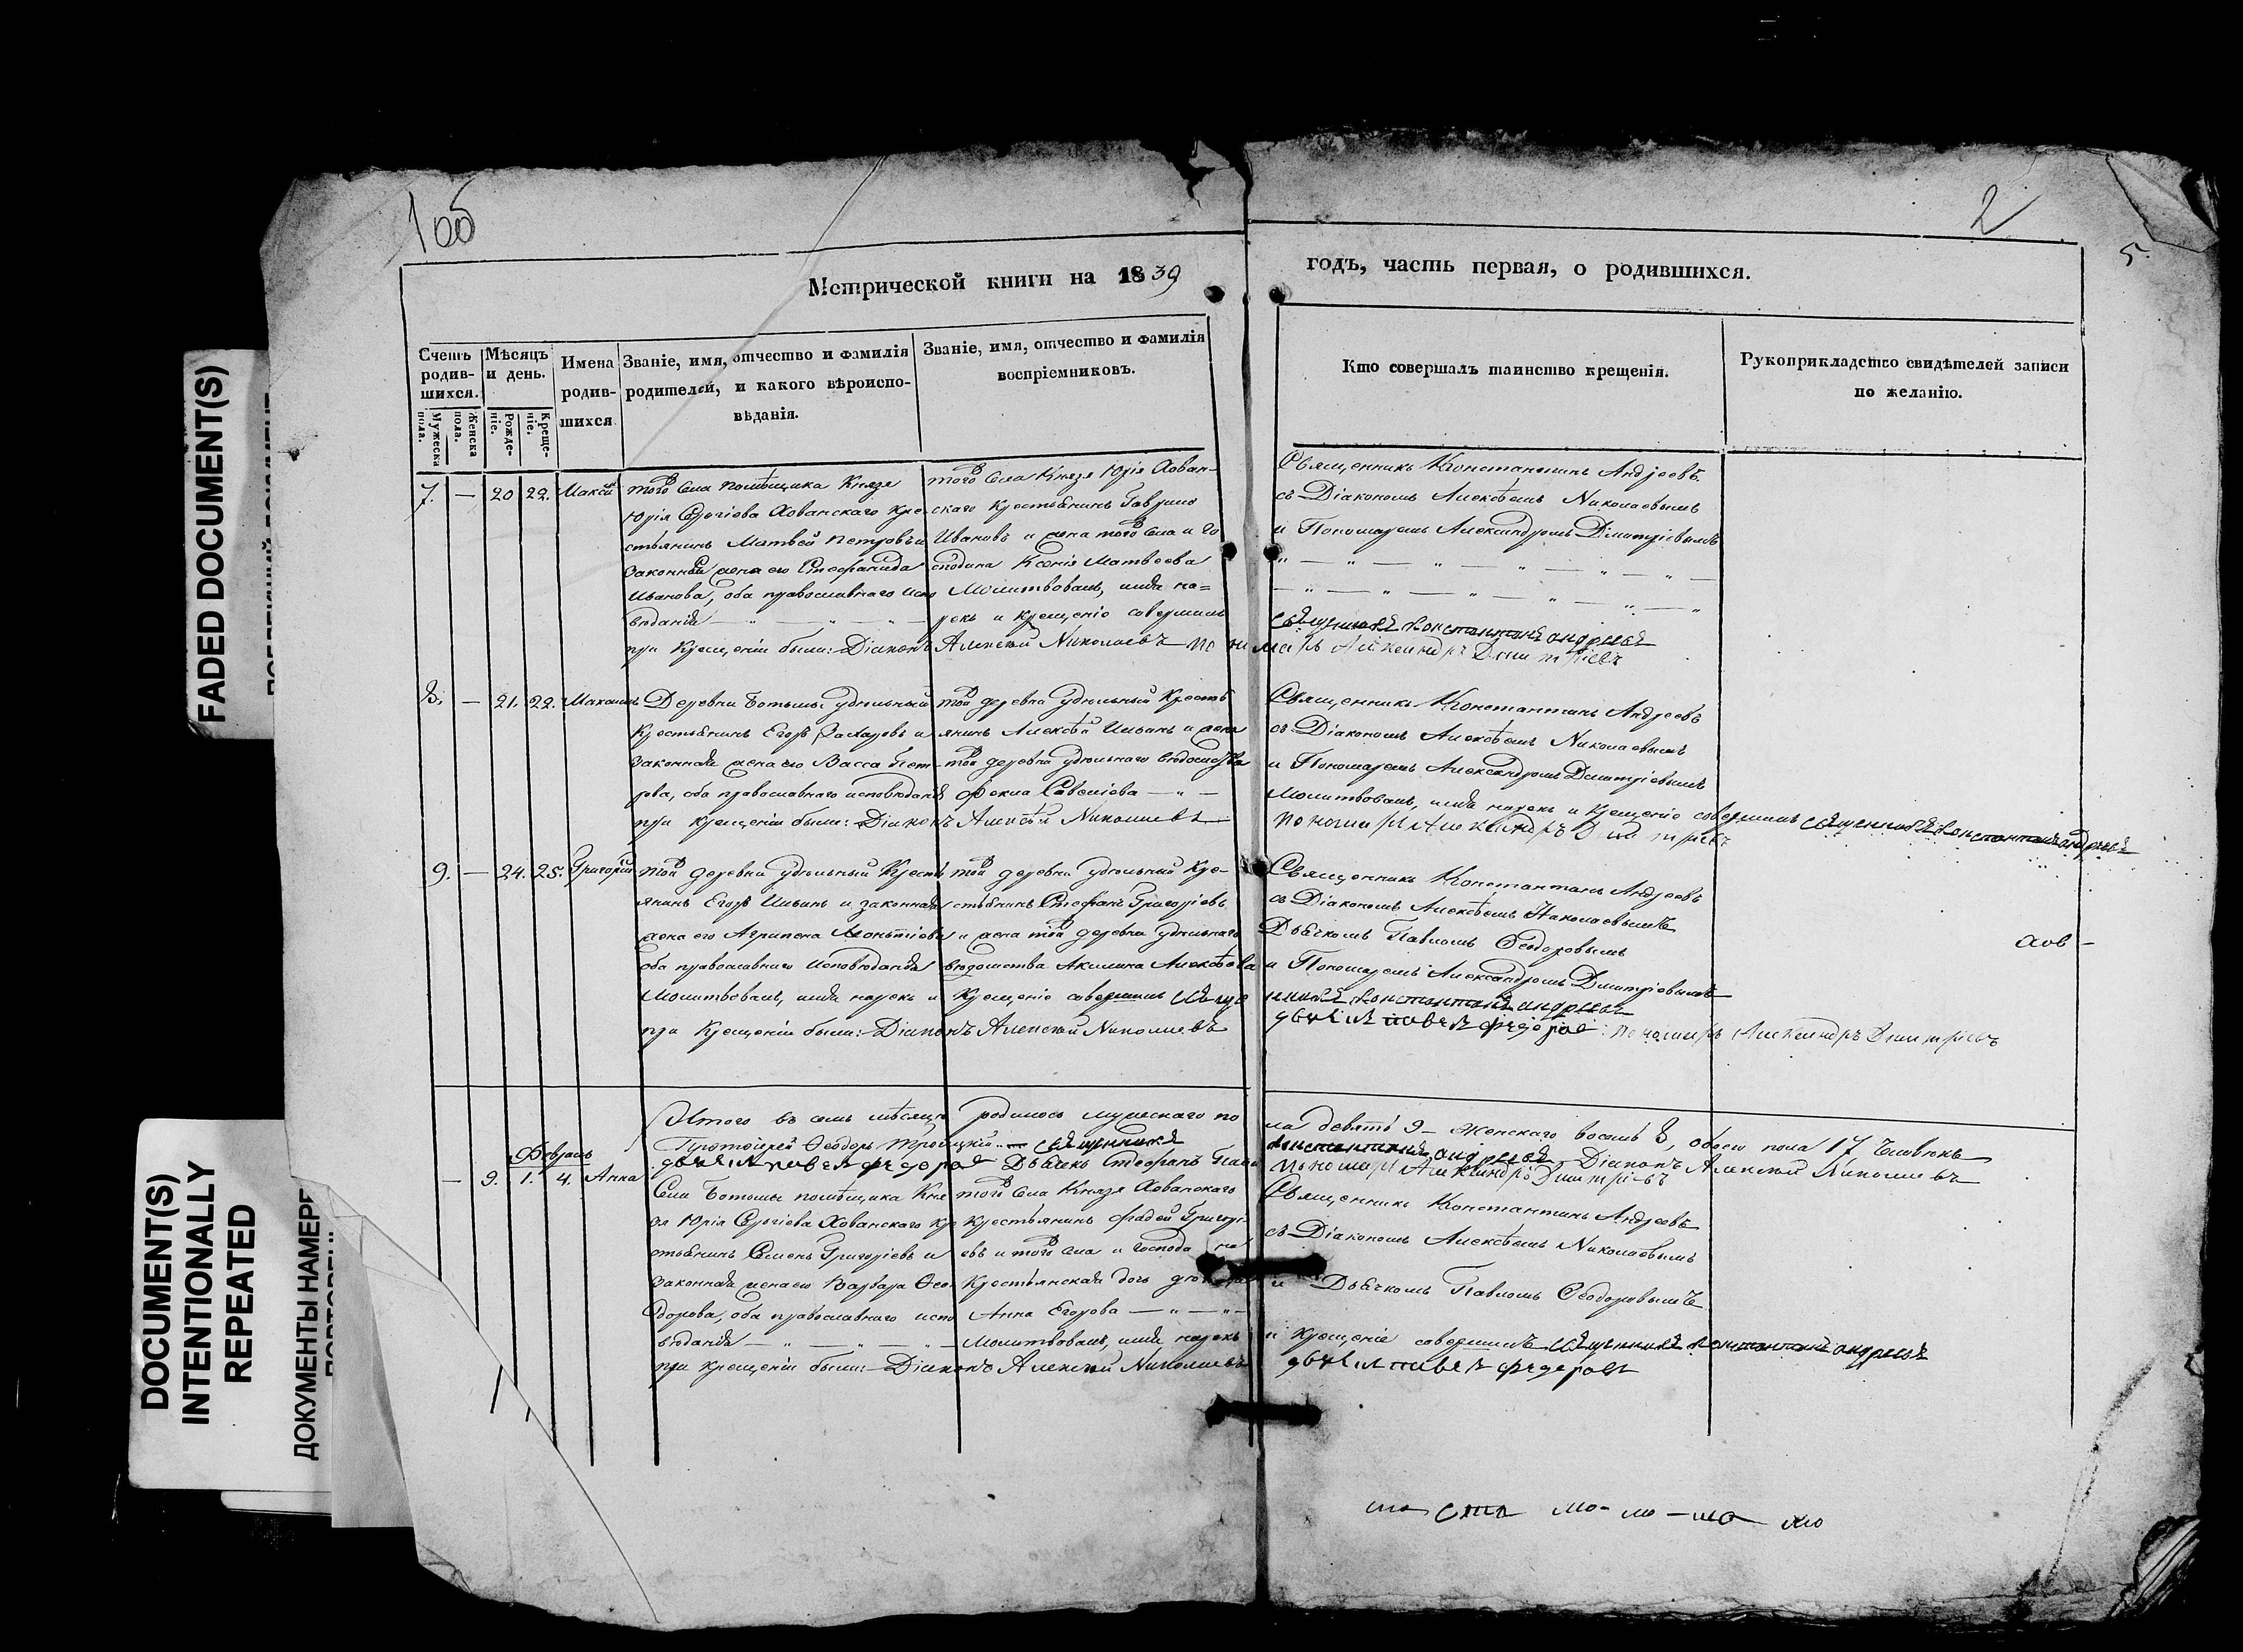 1об
2
5
Метрической книги на 1839
годъ, часть первая, о родившихся.
Счетъ родив-шихся.
Мужеска пола.
Женска пола.
Мѣсяцъ и день.
Рожде-ніе.
Креще-ніе.
Имена родив-шихся
Званіе, имя, отчество и фамилія
родителей, и какого вѣроиспо-
вѣданія.
Званіе, имя, отчество и фамилія
воспріемниковъ.
Кто совершалъ таинство крещенія.
Рукоприкладство свидѣтелей записи
по желанію.
7. — 20 22.
того села помѣщика Князя
Юрія Сергіева Хованскаго кре-
стьянинъ Матвей Петровъ и
законная жена его Стефанида
Иванова, оба православнаго испо
вѣданія — " — " —
того села Князя Юрія Хован-
скаго Крестьянинъ Гаврило
Ивановъ и жена того села и го
сподина Ксенія Матвѣева
Молитвовалъ, имя на=
рекъ и крещеніе совершилъ
Священникъ Константинъ Андреевъ
съ Діакономъ Алексѣемъ Николаевымъ
и Пономаремъ Александромъ Димитріевымъ
священникъ константинъ андреевъ
при Крещеніи были: Діаконъ Алексѣй Николаевъ пономарь Александръ Дмитріевъ
8. — 21. 22.
Деревни Ботьмы удѣльный
Крестьянинъ Егоръ Захаровъ и
законная жена его Васса Пет-
рова, оба православнаго исповѣданія
той деревни удѣльный Кресть
янинъ Алексѣй Ильинъ и жена
той деревни удѣльнаго вѣдомства
Фекла Савеліева — " —
Священникъ Константинъ Андреевъ
съ Діакономъ Алексѣемъ Николаевымъ
и Пономаремъ Александромъ Димитріевымъ
Молитвовалъ, имя нарекъ и крещеніе совершилъ священникъ константинъ андреевъ
при крещеніи были: Діаконъ Алексѣй Николаевъ
пономарь Александръ Дмитріевъ
9. — 24. 25. Григорій
той деревни удѣльный Кресть
янинъ Егоръ Ильинъ и законная
жена его Агрипена Леонтіева
оба православнаго исповѣданія
той деревни удѣльный Кре-
стьянинъ Стефанъ Григоріевъ
и жена той деревни удѣльнаго
вѣдомства Акилина Алексѣева
Священникъ Константинъ Андреевъ
съ Діакономъ Алексѣемъ Николаевымъ
Дьячкомъ Павломъ Ѳеодоровымъ
и Пономаремъ Александромъ Димитріевымъ
Молитвовалъ, имя нарекъ и Крещеніе совершилъ священникъ константинъ андреевъ
при Крещеніи были: Діаконъ Алексѣй Николаевъ
дьячекъ павелъ федоровъ: пономарь Александръ Дмитріевъ
Итого въ семъ мѣсяцѣ родилось мужескаго по
ла девять 9 — женскаго восемь 8, обоего пола 17 человѣкъ
Протоіерей Ѳеодоръ Троицкій — священникъ
константинъ андреевъ Діаконъ Алексѣй Николаевъ
дьячекъ павелъ федоровъ
пономарь Александръ Дмитріевъ
Февраль
— 9. 1. 4. Анна
Села Ботьмы помѣщика Кня
зя Юрія Сергіева Хованскаго кре
стьянинъ Семенъ Григоріевъ и
законная жена его Варвара Ѳео-
дорова, оба православнаго испо
вѣданія — " — " —
того села Князя Хованскаго
Крестьянинъ Фадей Григорі-
евъ и того села и господина
Крестьянская дочь
Анна Егорова — " — " —
Молитвовалъ, имя нарекъ
Священникъ Константинъ Андреевъ
съ Діакономъ Алексѣемъ Николаевымъ
и Дьячкомъ Павломъ Ѳеодоровымъ
и Крещеніе совершилъ священникъ константинъ андреевъ
при крещеніи были: Діаконъ Алексѣй Николаевъ
дьячекъ павелъ федоровъ
FADED DOCUMENT(S)
DOCUMENT(S)
INTENTIONALLY
REPEATED
ДОКУМЕНТЫ НАМЕРЕ